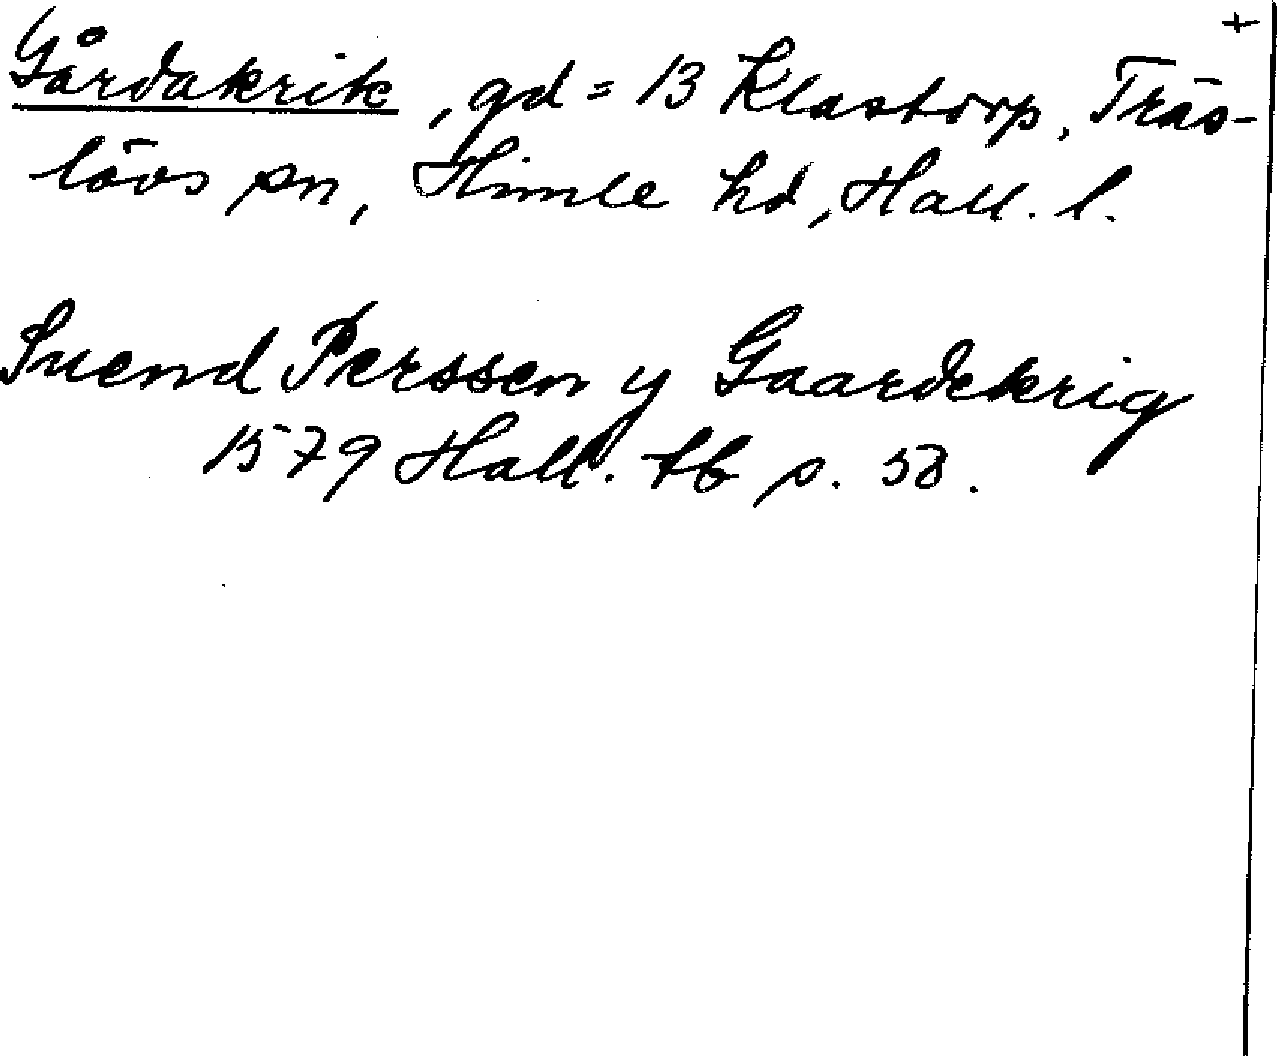 +
Gårdakrik, gd = 13 Klastorp, Träs-
lövs sn, Himle hd, Hall. l.
Suend Perssen y Gaardekrig
1579 Hall. tb s. 58.